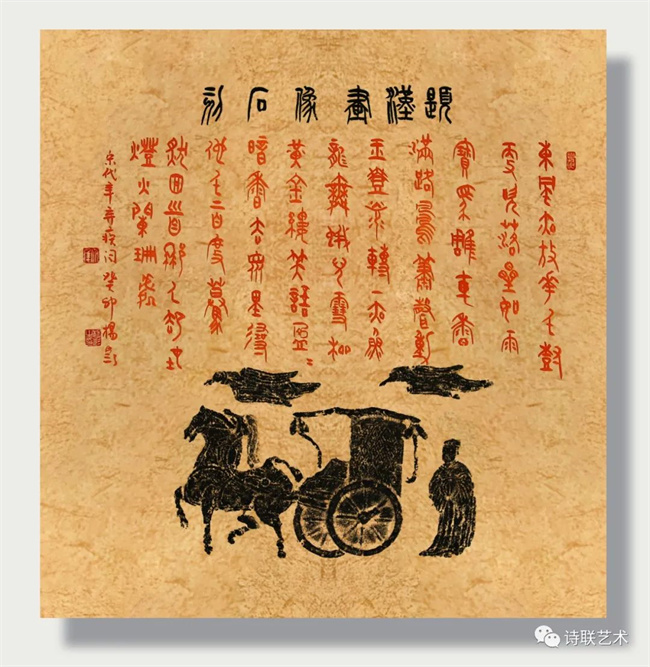 題漢畫像石刻
東風夜放花千樹
更吹落星如雨
寶馬雕車香
滿路鳳簫聲動
玉壺光轉一夜魚
龍舞蛾兒雪柳
黃金縷笑語盈〻
暗香去眾里尋
他千百度驀
然回首那人卻在
燈火闌珊處
宋代辛棄疾詞癸卯楊
诗联艺术